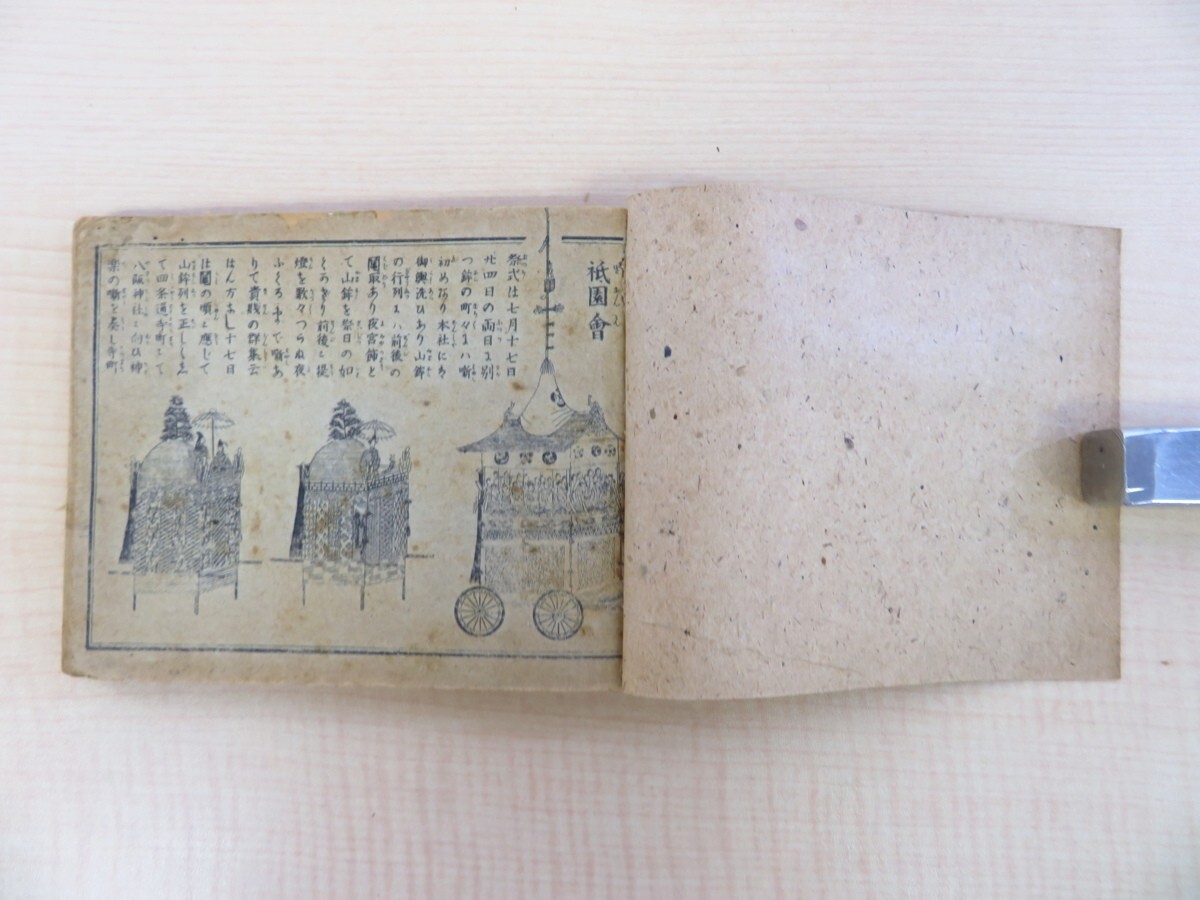 祇園會
祭式は七月十七日
廿四日の両日に別
つ鉾の町々にハ囃
初めあり本社にハ
御輿洗ひあり山鉾
の行列にハ前後の
鬮取あり夜宮飾と
て山鉾を祭日の如
くかざり前後に提
燈を数々つらね夜
ふくるまで囃あ
りて貴賤の群集云
はん方なし十七日
は鬮の順に應じて
山鉾列を正しくし
て四条通寺町にて
八阪神社に向ひ神
楽の囃を奏し寺町